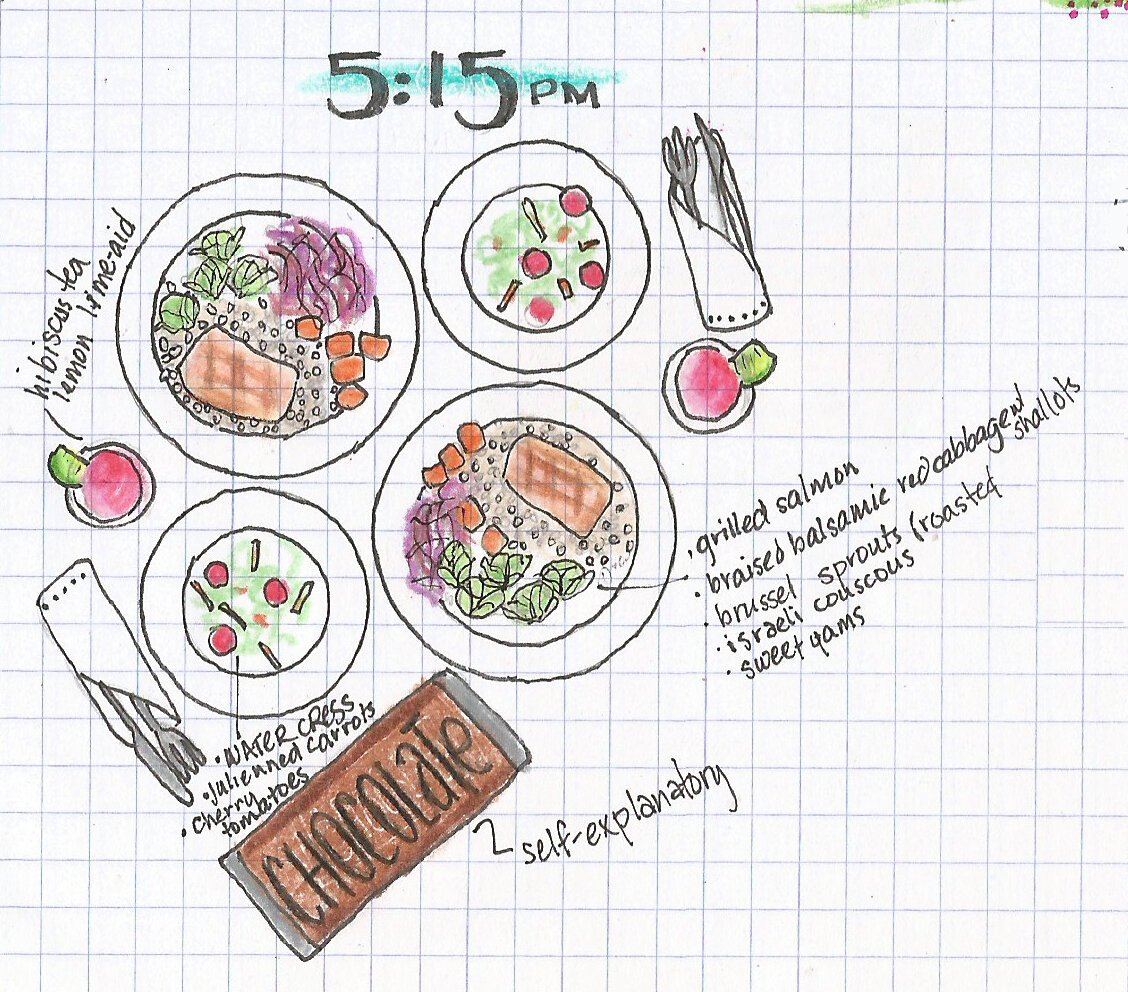 5:15 PM
hibiscus tea
lemon lime-aid
• grilled salmon
• braised balsamic red cabbage w/
shallots
• brussel sprouts (roasted
• israeli couscous
• sweet yams
• WATER CRESS
• julienned carrots
• cherry
tomatoes
CHOCOLATE
self-explanatory